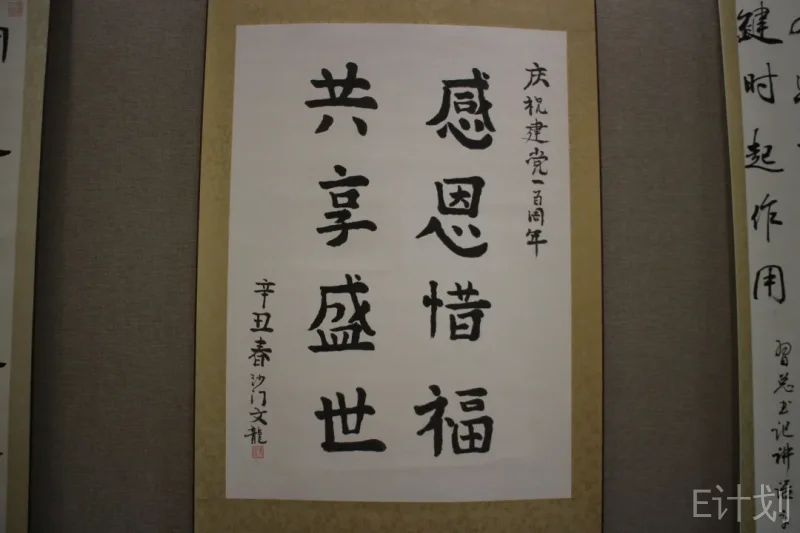 庆祝建党一百周年
感恩惜福
共享盛世
辛丑春沙门文龍
键时起作用
习总书记讲话
E计划